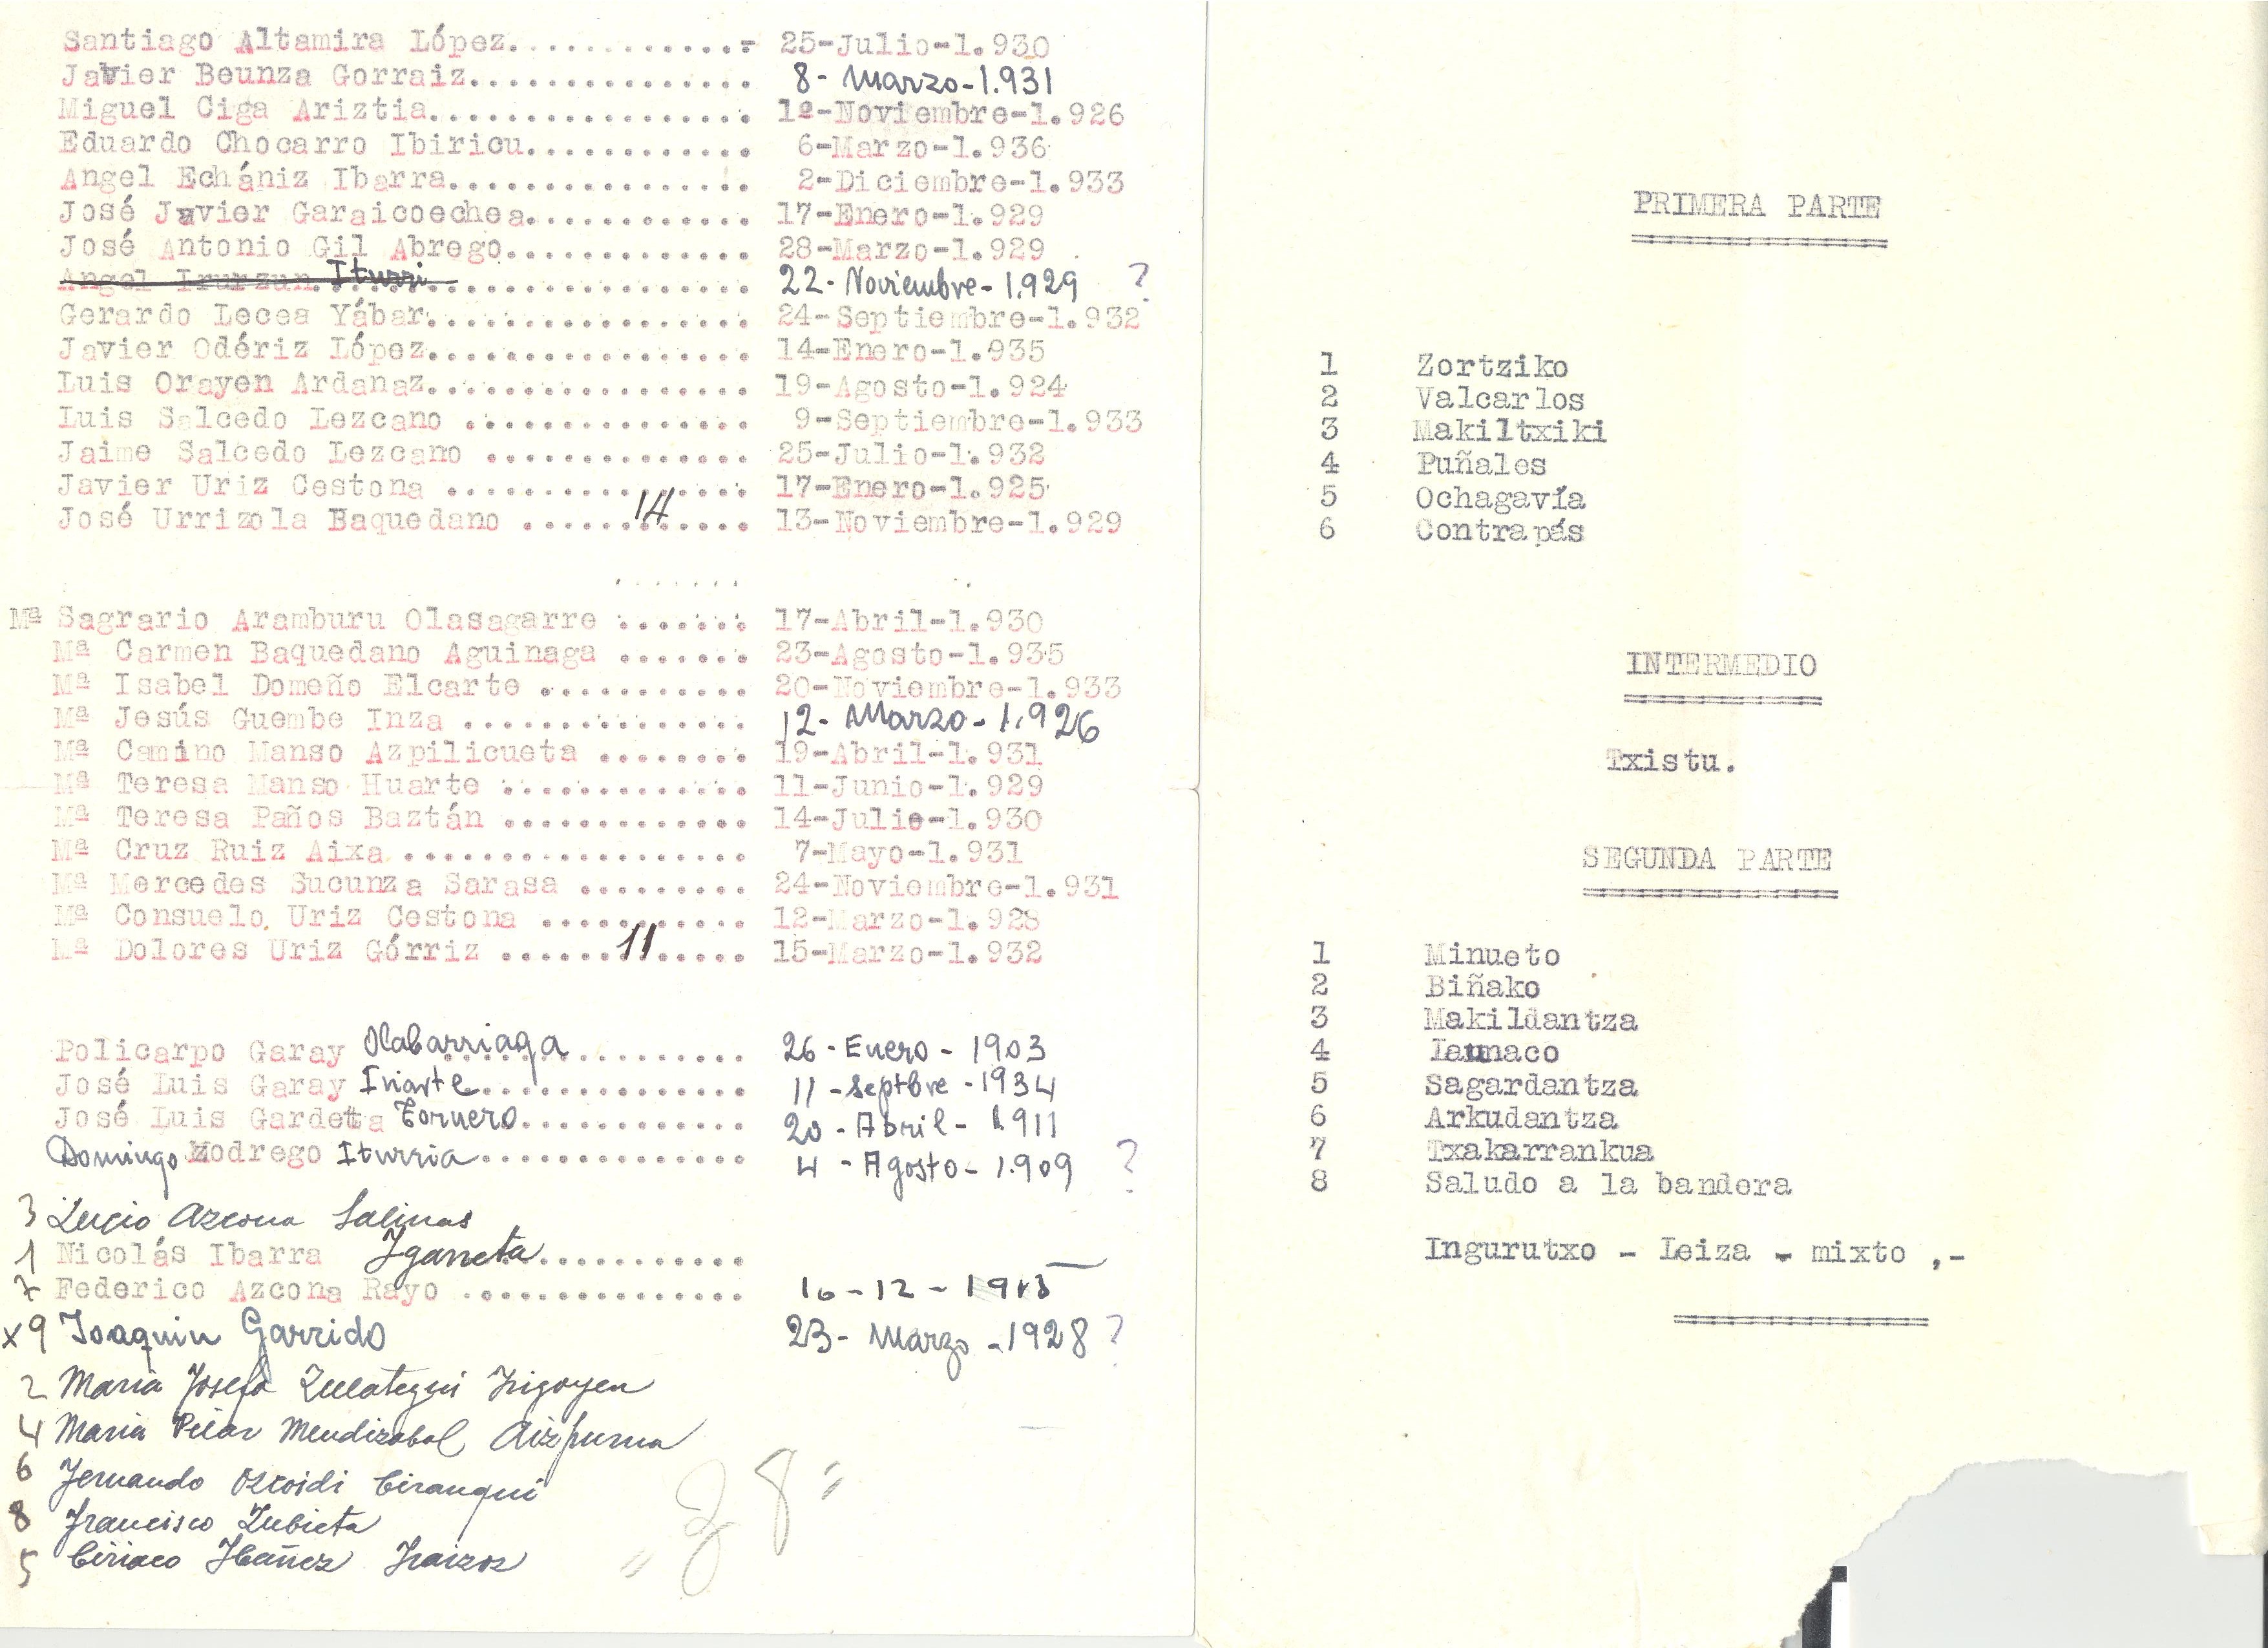 Santiago Altamira López............- 25-Julio-1.930
Javier Beunza Gorraiz............... 8- Marzo-1.931
Miguel Ciga Ariztia................. 1º-Noviembre-1.926
Eduardo Chocarro Ibiricu............ 6-Marzo-1.936
Angel Echániz Ibarra................ 2-Diciembre-1.933
José Javier Garaicoechea............ 17-Enero-1.929
José Antonio Gil Abrego............. 28-Marzo-1.929
Angel Irurzun Iturri................ 22- Noviembre- 1.929 ?
Gerardo Lecea Yábar................. 24-Septiembre-1.932
Javier Odériz López................. 14-Enero-1.935
Luis Orayen Ardanaz................. 19-Agosto-1.924
Luis Salcedo Lezcano ............... 9-Septiembre-1.933
Jaime Salcedo Lezcano .............. 25-Julio-1.932
Javier Uriz Cestona ................ 17-Enero-1.925
José Urrizola Baquedano ......14...... 13-Noviembre-1.929
Mª Sagrario Aramburu Olasagarre ....... 17-Abril-1.930
Mª Carmen Baquedano Aguinaga ....... 23-Agosto-1.935
Mª Isabel Domeño Elcarte ........... 20-Noviembre-1.933
Mª Jesús Guembe Inza ............... 12- Marzo - 1.926
Mª Camino Manso Azpilicueta ........ 19-Abril-1.931
Mª Teresa Manso Huarte ............. 11-Junio-1.929
Mª Teresa Paños Baztán ............. 14-Julio-1.930
Mª Cruz Ruiz Aixa .................. 7-Mayo-1.931
Mª Mercedes Sucunza Sarasa ......... 24-Noviembre-1.931
Mª Consuelo Uriz Cestona ........... 12-Marzo-1.928
Mª Dolores Uriz Górriz ......11..... 15-Marzo-1.932
Policarpo Garay Olabarriaga ............... 26 - Enero - 1903
José Luis Garay Iriarte.............. 11 - Septbre - 1934
José Luis Gardetta Tornero............ 20 - Abril - 1911
Domingo Modrego Iturria.............. 4 - Agosto - 1.909 ?
3 Lucio Azcona Salinas
1 Nicolás Ibarra Igarreta...........
7 Federico Azcona Rayo ............... 16 - 12 - 1915
x9 Joaquin Garrido 23 - Marzo - 1928 ?
2 Maria Josefa Zulategui Irigoyen
4 Maria Pilar Mendizabal Aizpurua
6 Fernando Ozcoidi Ciranqui
8 Francisco Zubieta
5 Ciriaco Ibañez Iraizoz
" 38 "
PRIMERA PARTE
1 Zortziko
2 Valcarlos
3 Makiltxiki
4 Puñales
5 Ochagavía
6 Contrapás
INTERMEDIO
Txistu.
SEGUNDA PARTE
1 Minueto
2 Biñako
3 Makildantza
4 Iaunaco
5 Sagardantza
6 Arkudantza
7 Txakarrankua
8 Saludo a la bandera
Ingurutxo - Leiza - mixto ,-